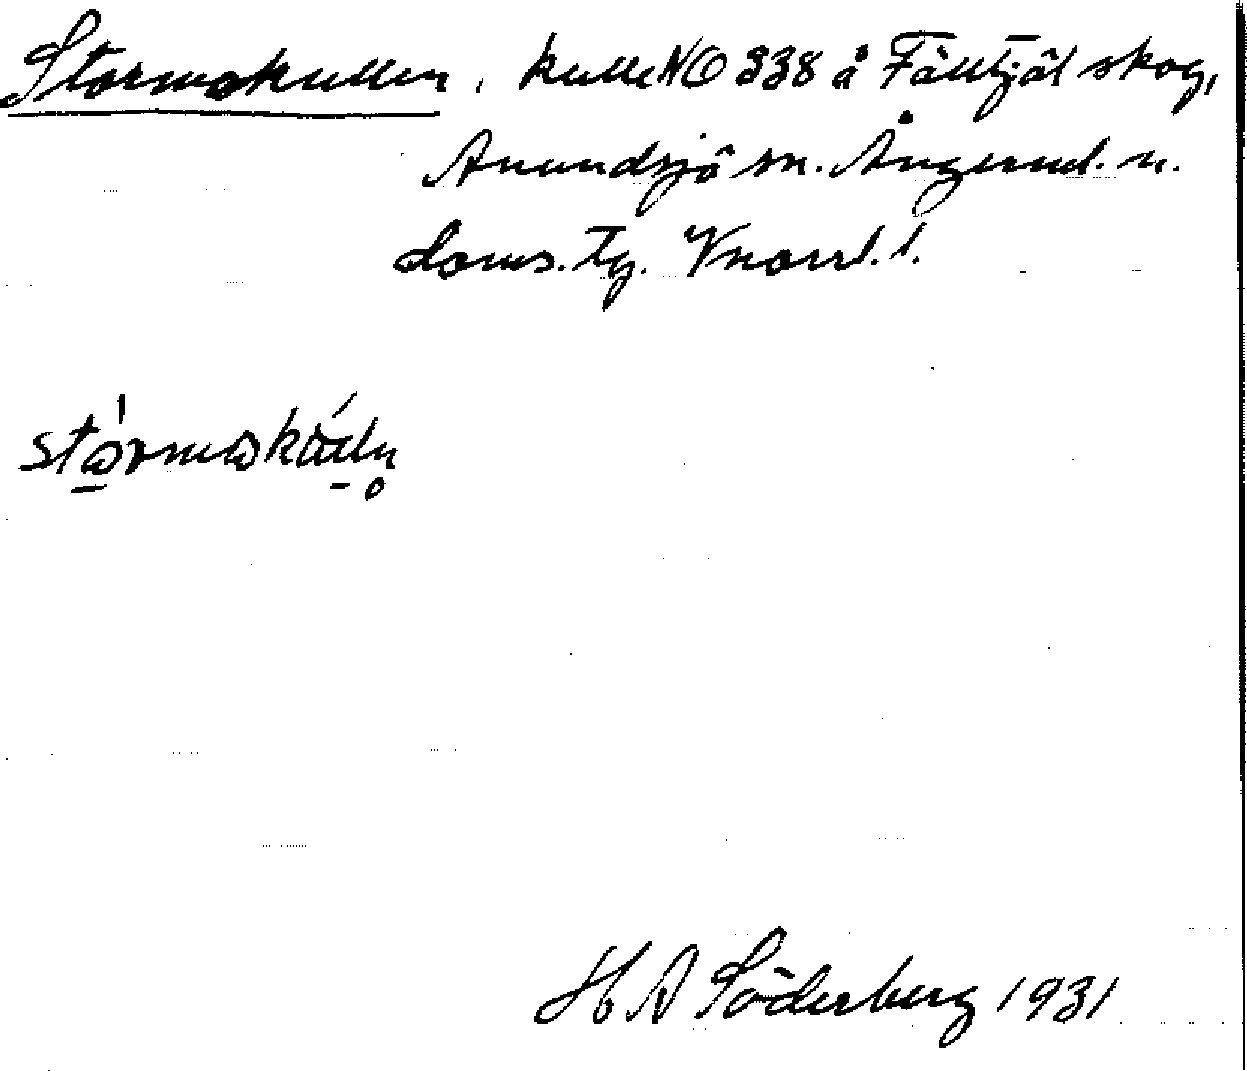 Stormokullen, kulle NO 338 å Fälltjäl skog,
Anundsjö sn. Ångerml. n.
doms. tg. Vnorrl. l.
stórmokúlln
H A Söderberg 1931